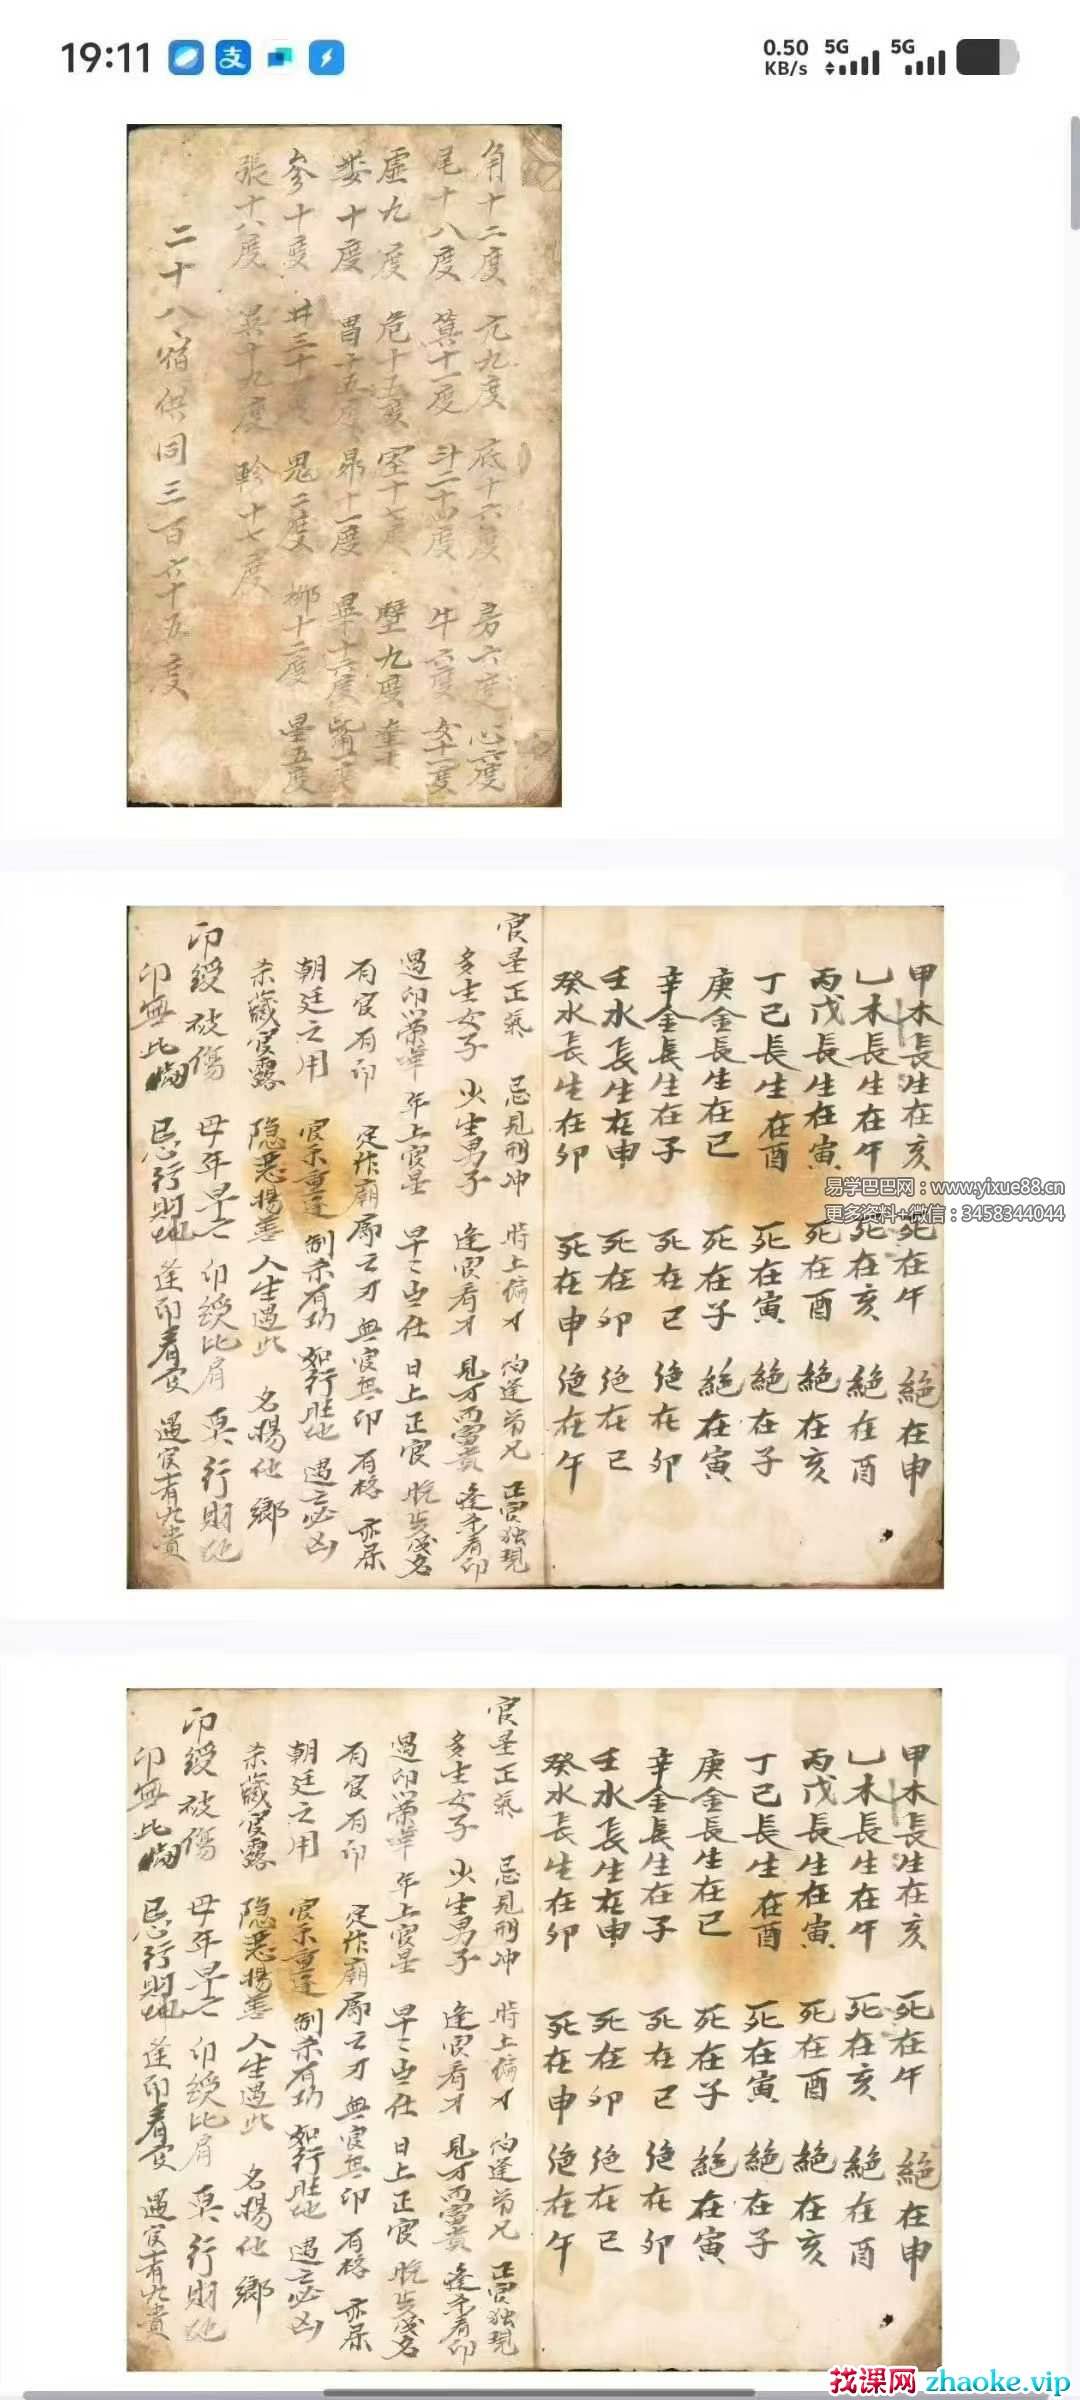 19:11
支
0.50
KB/s
5G
5G
角十二度 亢九度 底十六度 房六度 心六度
尾十八度 箕十一度 斗二十四度 牛六度 女十一度
虚九度 危十五度 室十七度 壁九度 奎十
娄十度 胃十五度 昴十一度 畢十六度 觜一度
参十度 井三十度 鬼二度 柳十二度 星五度
張十八度 翼十九度 軫十七度
二十八宿供同三百六十五度
甲木長生在亥 死在午 絕在申
乙木長生在午 死在亥 絕在酉
丙戊長生在寅 死在酉 絕在亥
丁己長生在酉 死在寅 絕在子
庚金長生在巳 死在子 絕在寅
辛金長生在子 死在巳 绝在卯
壬水長生在申 死在卯 绝在巳
癸水長生在卯 死在申 绝在午
官星正氣 忌見刑冲 時上偏才 怕逢弟兄 正官独現
多生女子 少生男子 逢官看才 見才而富貴 逢杀看印
遇印以榮華 年上官星 早年出仕 日上正官 晚步成名
有官有印 定作廟廊之才 無官無印 有格 亦呆
朝廷之用 官杀重逢 制杀有功 如行旺地 遇之必凶
杀藏官露 隐恶揚善 人生遇此 名揚他鄉
印綬被傷 母年早亡 印綬比肩 莫行財地
印無比 忌行財地 逢印看官 遇官有九貴
易学巴巴网：www.yixue88.cn
更多资料+微信：3458344044
甲木長生在亥 死在午 絕在申
乙木長生在午 死在亥 絕在酉
丙戊長生在寅 死在酉 絕在亥
丁己長生在酉 死在寅 絕在子
庚金長生在巳 死在子 絕在寅
辛金長生在子 死在巳 绝在卯
壬水長生在申 死在卯 绝在巳
癸水長生在卯 死在申 绝在午
官星正氣 忌見刑冲 時上偏才 怕逢弟兄 正官独現
多生女子 少生男子 逢官看才 見才而富貴 逢杀看印
遇印以榮華 年上官星 早年出仕 日上正官 晚步成名
有官有印 定作廟廊之才 無官無印 有格 亦呆
朝廷之用 官杀重逢 制杀有功 如行旺地 遇之必凶
杀藏官露 隐恶揚善 人生遇此 名揚他鄉
印綬被傷 母年早亡 印綬比肩 莫行財地
印無比 忌行財地 逢印看官 遇官有九貴
找课网 zhaoke.vip